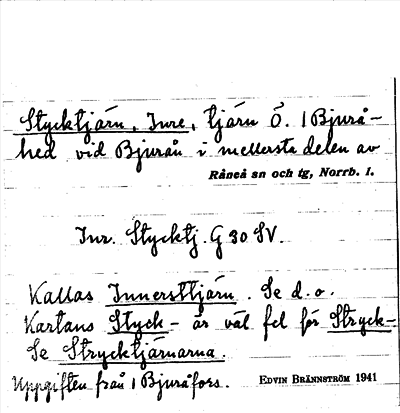 Stycktjärn, Inre, tjärn Ö. 1 Bjurå-
hed vid Bjurån i mellersta delen av
Råneå sn och tg, Norrb. l.
Inr. Stycktj. G 30 SV.
Kallas Innersttjärn. Se d. o.
Kartans Styck- är väl fel för Stryck-
Se Strycktjärnarna.
Uppgiften från 1 Bjuråfors.
EDVIN BRÄNNSTRÖM 1941